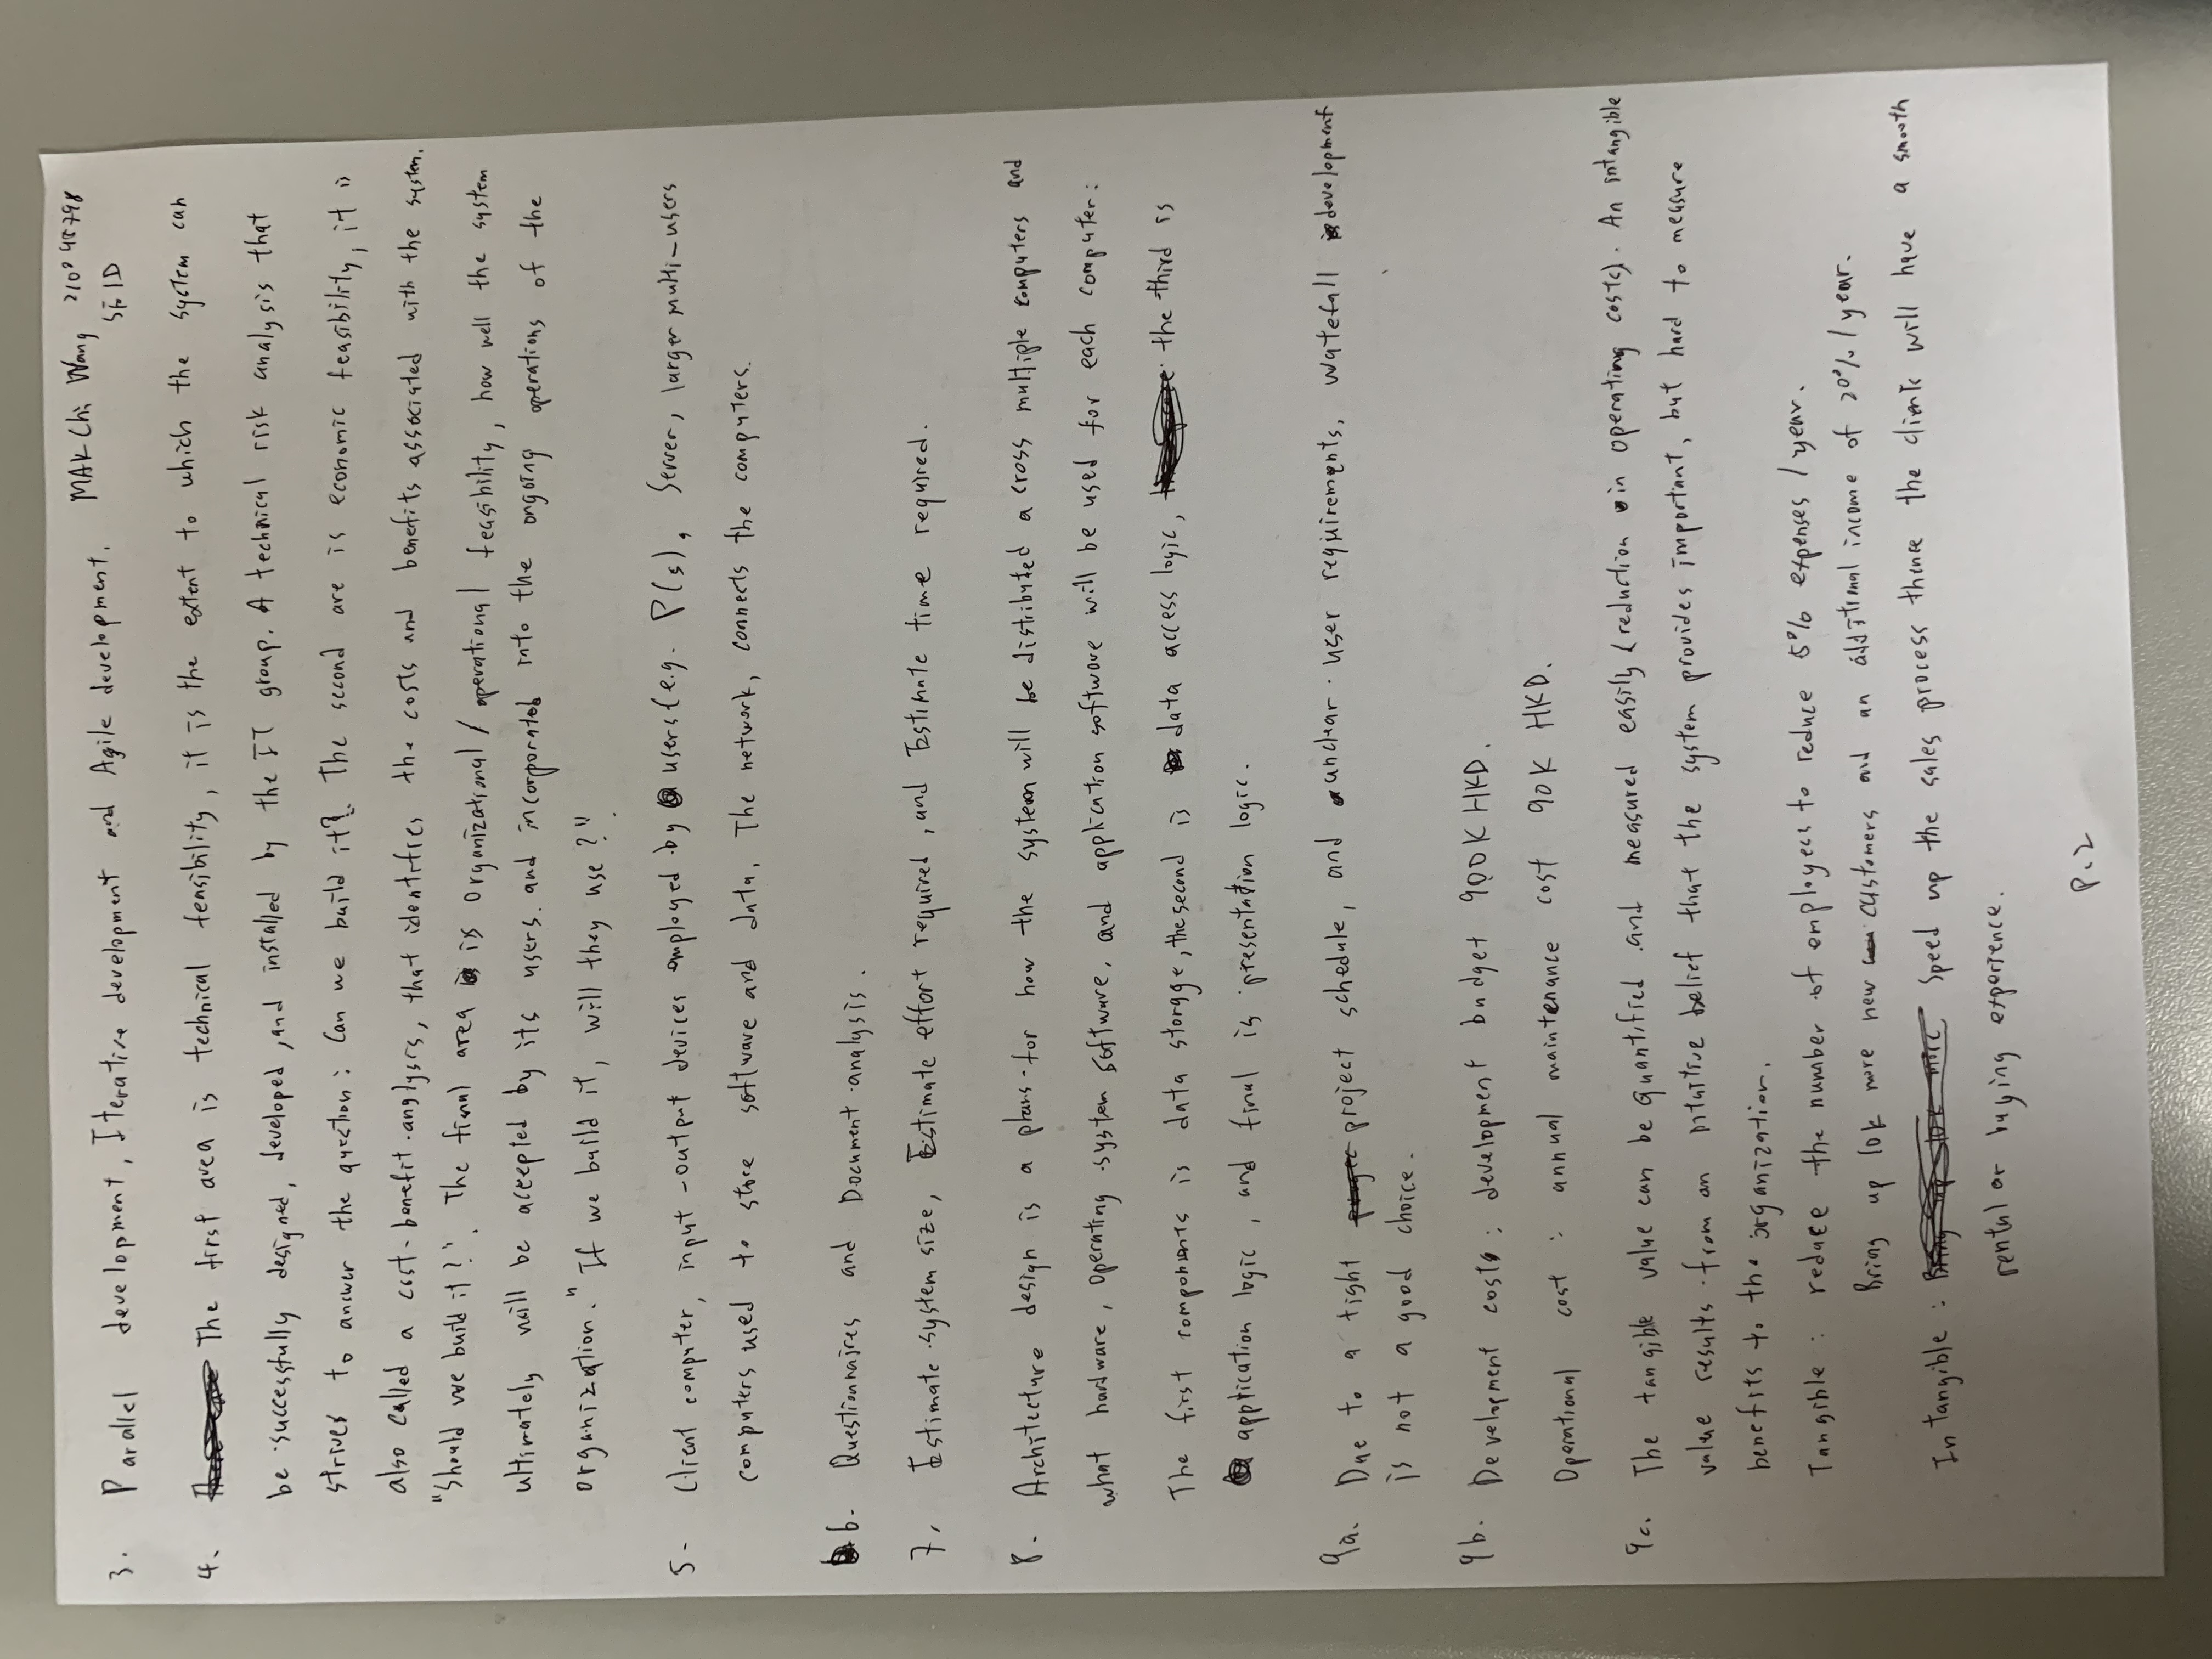 MAK Chi Wang 210248798
3. Parallel development, Iterative development and Agile development.
SE1D
4. The first area is technical feasibility, it is the extent to which the system can
be successfully designed, developed, and installed by the IT group. A technical risk analysis that
strives to answer the question: Can we build it?. The second are is economic feasibility, it is
also called a cost-benefit analysis, that identifies the costs and benefits associated with the system.
"Should we build it?". The final area is organizational / operational feasibility, how well the system
ultimately will be accepted by its users and incorporated into the ongoing operations of the
organization. "If we build it, will they use?".
5. Client computer, input-output devices employed by users (e.g. PCs), Server, larger multi-users
computers used to store software and data, The network, connects the computers.
6. Questionnaires and Document analysis.
7. Estimate system size, Estimate effort required, and Estimate time required.
8. Architecture design is a plans for how the system will be distributed a cross multiple computers and
what hardware, operating system software, and application software will be used for each computer:
The first components is data storage, the second is data access logic, the third is
application logic, and final is presentation logic.
9a. Due to a tight project schedule, and unclear user requirements, watefall development
is not a good choice.
9b. Development costs: development budget 900K HKD.
Operational cost: annual maintenance cost 90K HKD.
9c. The tangible value can be quantified and measured easily (reduction in operating costs). An intangible
value results from an intuitive belief that the system provides important, but hard to measure
benefits to the organization.
Tangible: reduce the number of employees to reduce 5% expenses / year.
Bring up 10k more new customers and an additional income of 20% / year.
Intangible: Speed up the sales process thence the clients will have a smooth
rental or buying experience.
P.2